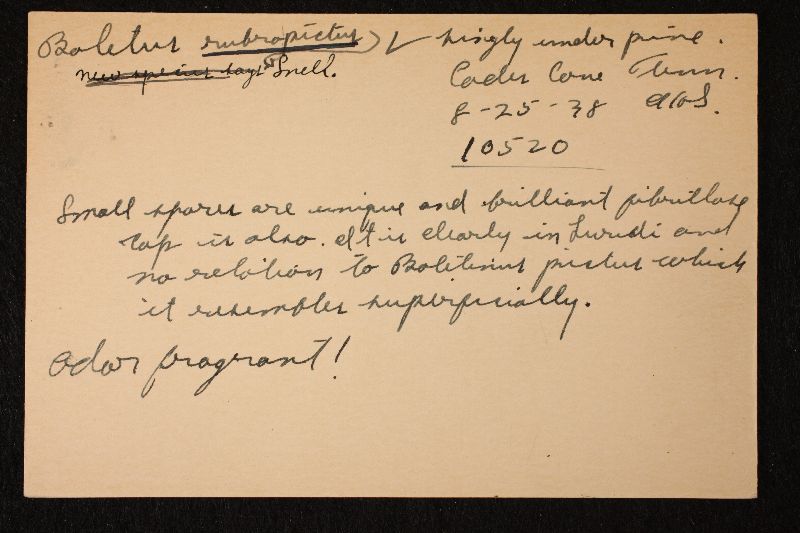 Boletus rubropictus ✓ singly under pine.
new species says Snell.
Cades Cove Tenn.
8-25-38
10520
Small spores are unique and brilliant fibrillose
cap is also. It is clearly in Luridi and
no relation to Boletinus pictus which
it resembles superficially.
Odor fragrant!